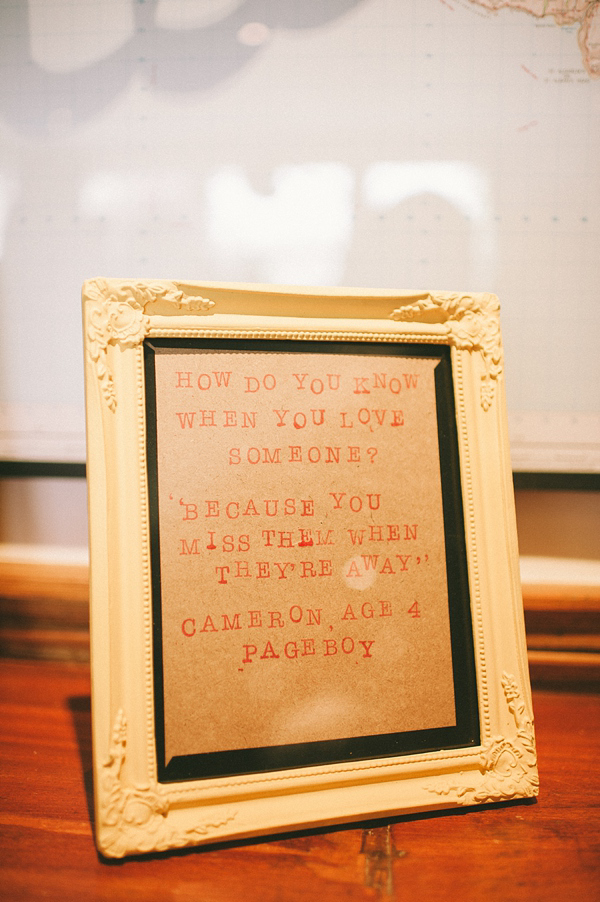 HOW DO YOU KNOW
WHEN YOU LOVE
SOMEONE?
"BECAUSE YOU
MISS THEM WHEN
THEY'RE AWAY"
CAMERON, AGE 4
PAGEBOY